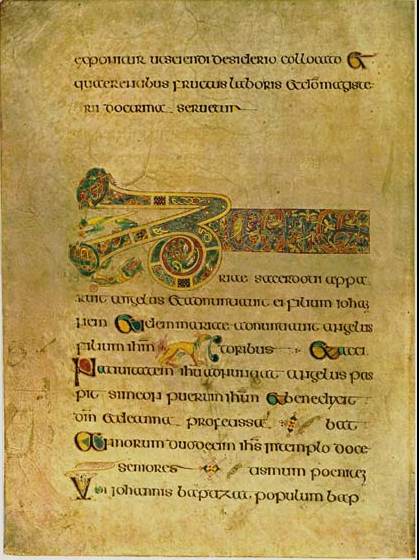 exponitur ut sciendi desiderio collocato et
quaerentibus fructus laboris et dm magiste
rii doctrina servetur
ZACHA
riae sacerdoti appa
ruit angelus et adnuntiavit ei filium iohan
nem et idem mariae adnuntiavit angelus
filium ihm toribus et acci
Nativitatem ihu adnuntiat angelus pas
pit simeon puerum ihm et benedixit
dm et de anna profetissa bat
Annorum duodecim ihs in templo doce
seniores tismum
Ubi iohannis baptizat populum bap